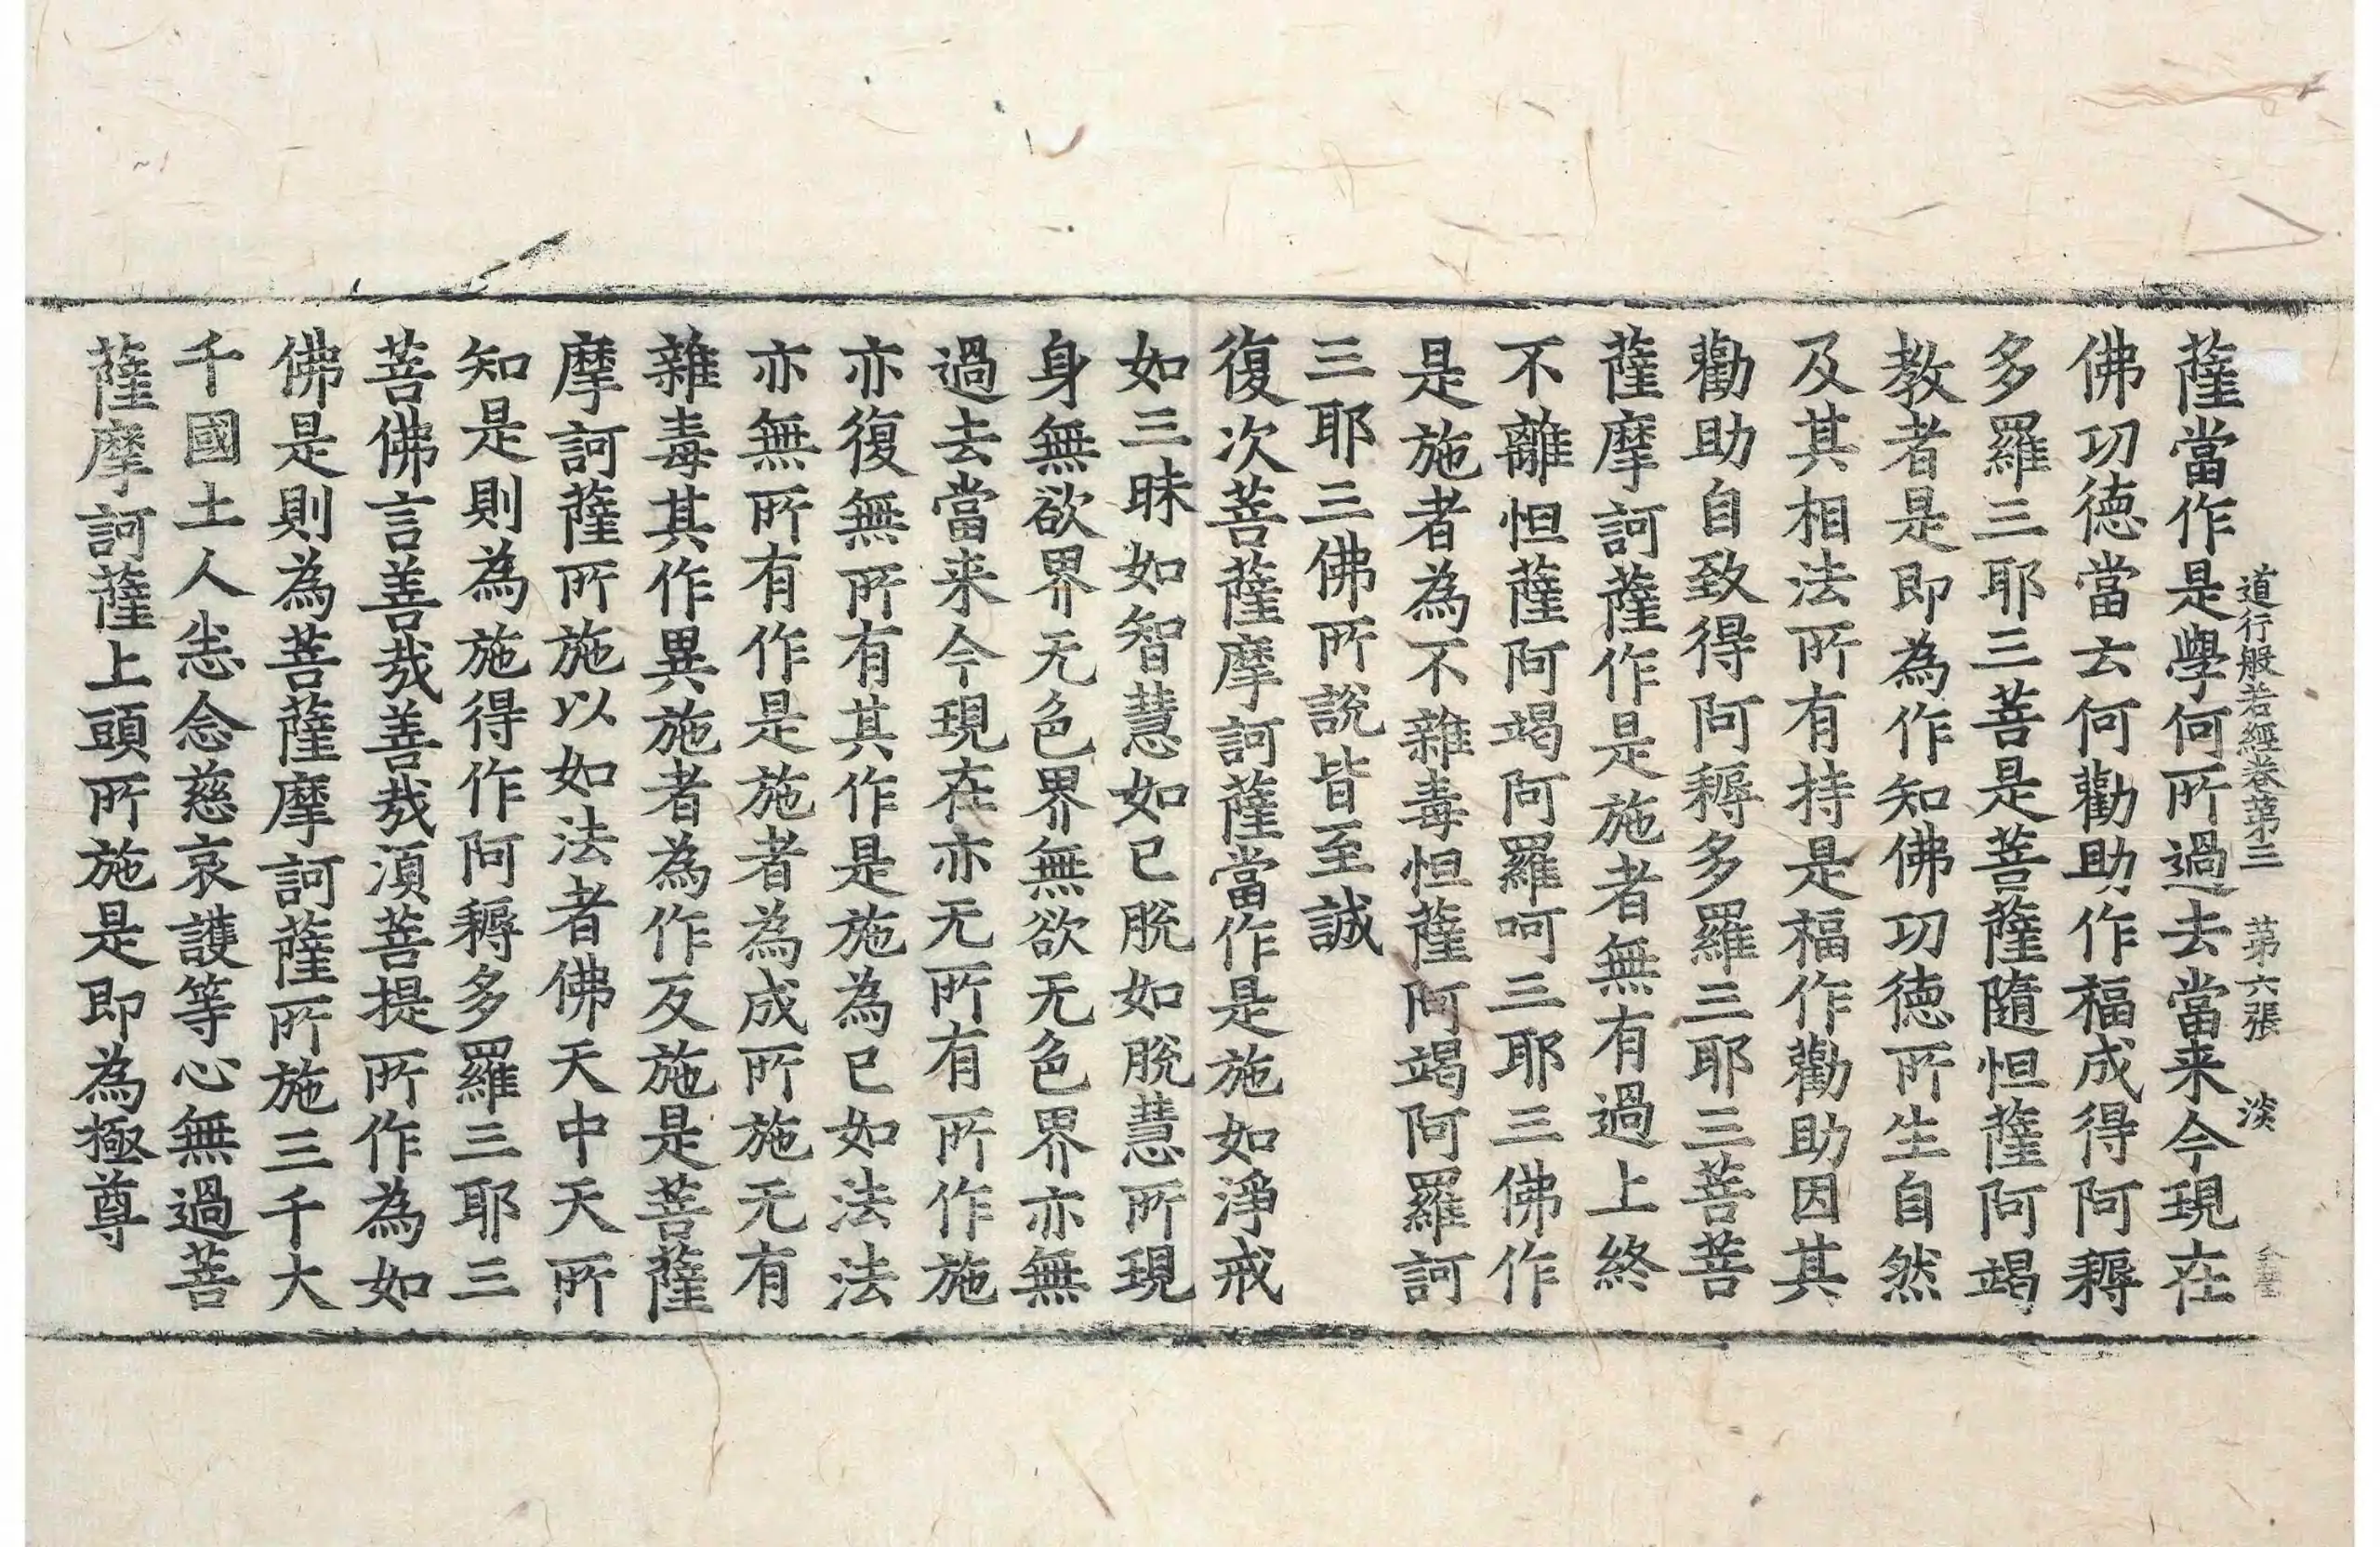 道行般若經卷第三 第六張 淡
薩當作是學何所過去當来今現在
佛功德當云何勸助作福成得阿耨
多羅三耶三菩是菩薩隨怛薩阿竭
教者是即為作知佛功德所生自然
及其相法所有持是福作勸助因其
勸助自致得阿耨多羅三耶三菩菩
薩摩訶薩作是施者無有過上終
不離怛薩阿竭阿羅呵三耶三佛作
是施者為不雜毒怛薩阿竭阿羅訶
三耶三佛所說皆至誠
復次菩薩摩訶薩當作是施如淨戒
如三昧如智慧如已脫如脫慧所現
身無欲界无色界無欲无色界亦無
過去當来今現在亦无所有所作施
亦復無所有其作是施為已如法法
亦無所有作是施者為成所施无有
雜毒其作異施者為作反施是菩薩
摩訶薩所施以如法者佛天中天所
知是則為施得作阿耨多羅三耶三
菩佛言善哉善哉湏菩提所作為如
佛是則為菩薩摩訶薩所施三千大
千國土人悉念慈哀護等心無過菩
薩摩訶薩上頭所施是即為極尊